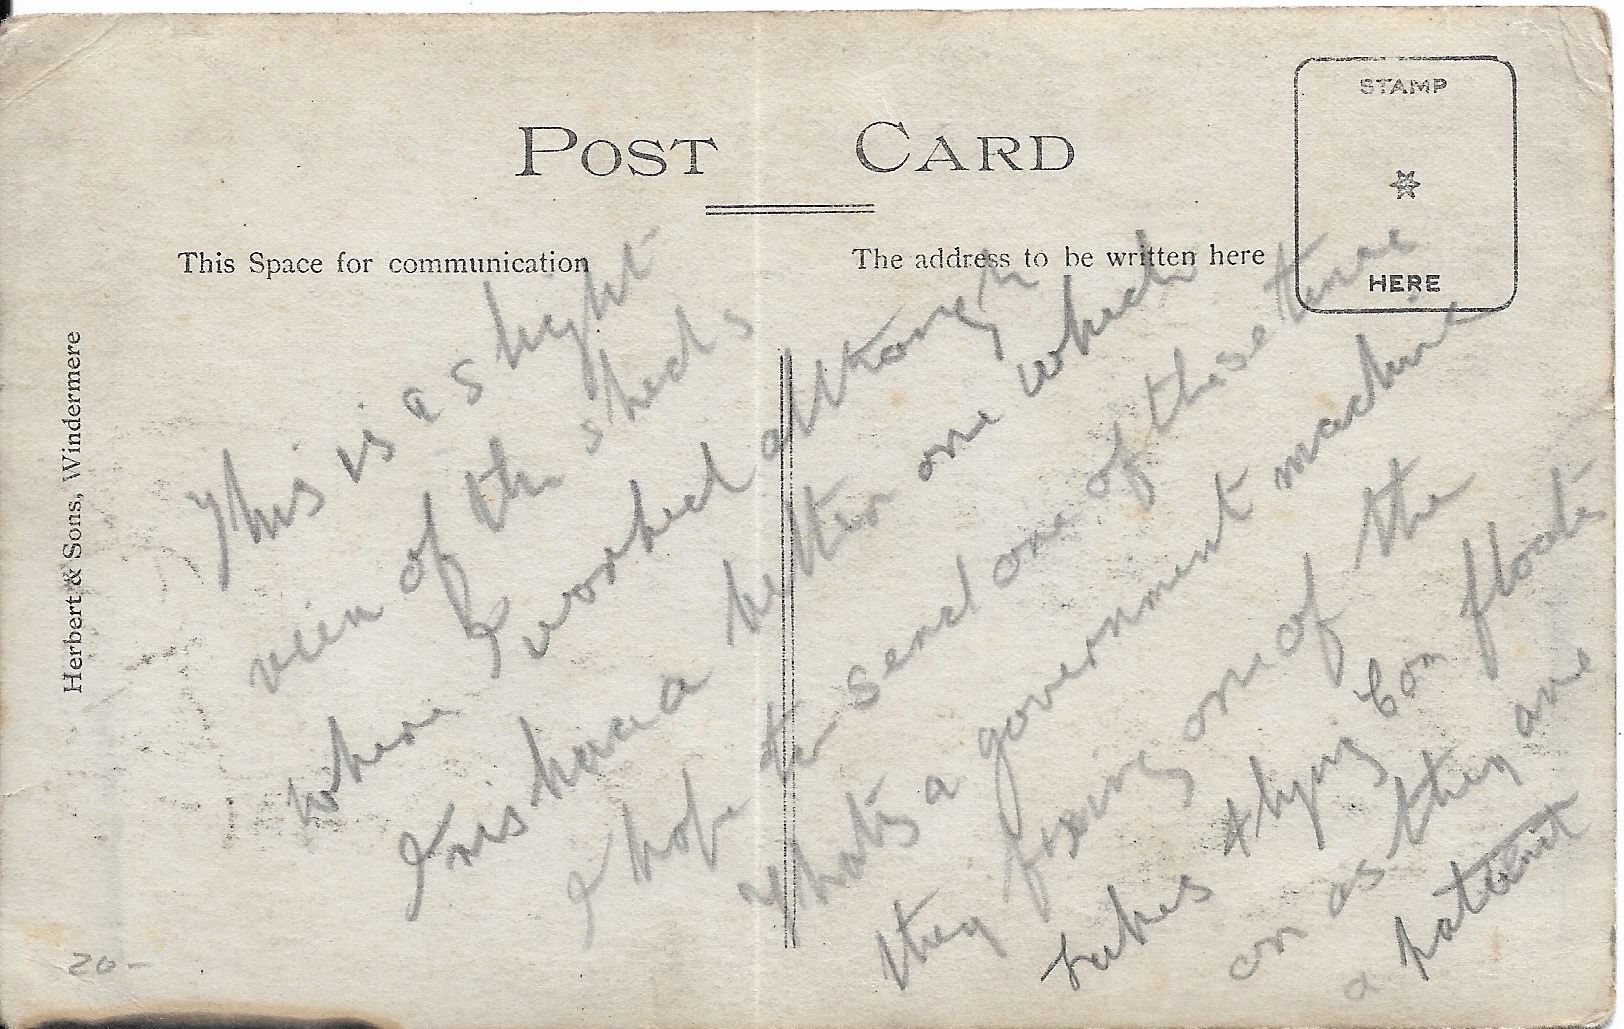 POST CARD
STAMP
HERE
This Space for communication
The address to be written here
Herbert & Sons, Windermere
This is a slight
view of the sheds
where I worked although
I have a better one which
I hope to send one of these time
thats a government machine
they fixing one of the
tubes & lying on floats
on as they are
a patient
20-